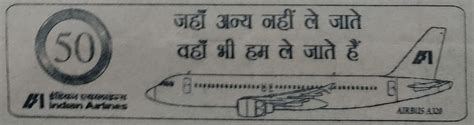 50
जहाँ अन्य नहीं ले जाते
वहाँ भी हम ले जाते हैं
इंडियन एयरलाइन्स
Indian Airlines
AIRBUS A320